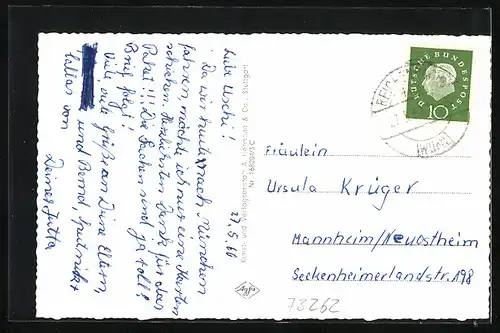 27.5.60
Liebe Uschi!
Da wir heute nach München
fahren, möchte ich nur eine Karten
schicken. Herzlichsten Dank für das
Paket!!! Die Sachen sind ja toll!
Brief folgt!
Viele viele Grüße an Deine Eltern,
und Bernd,
alles von
Deiner Jutta
Kunst- und Verlagsanstalt & Co., Stuttgart
Nr.
Agfa
DEUTSCHE BUNDESPOST
10
Fräulein
Ursula Krüger
Mannheim/Neuostheim
Seckenheimerlandstr. 198
73262